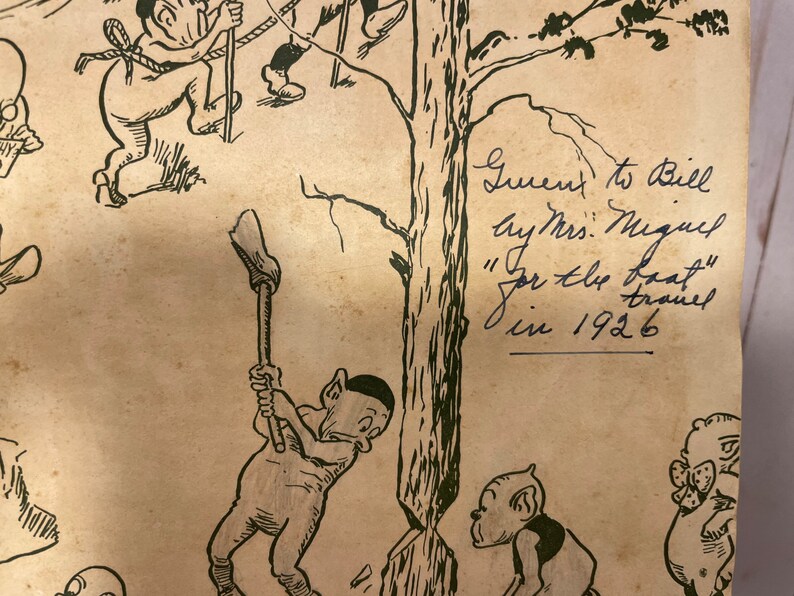 Given to Bill
by Mrs. Miguel
"for the boat"
travel
in 1926